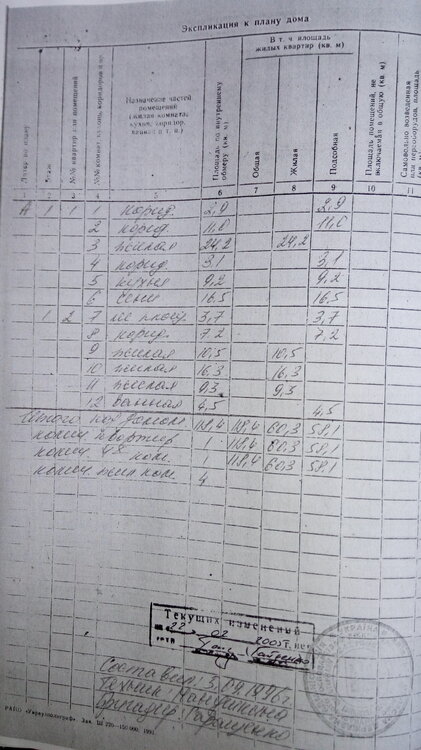 Экспликация к плану дома
Литер по плану
Этаж
№№ квартир или помещений
№№ комнат, кухонь, коридоров и пр.
Назначение частей помещения (жилая комната, кухня, коридор, ванная и т. п.)
Площадь по внутреннему обмеру (кв. м)
В т. ч площадь жилых квартир (кв. м)
Общая
Жилая
Подсобная
Площадь помещений, не включаемая в общую (кв. м)
Самовольно возведенная или переоборуд. площадь
1 2 3 4 5 6 7 8 9 10 11
А 1 1 1 корид. 2,9 2,9
2 корид. 11,6 11,6
3 жилая 24,2 24,2
4 корид. 3,1 3,1
5 кухня 9,2 9,2
6 сени 16,5 16,5
1 2 7 3,7 3,7
8 корид. 7,2 7,2
9 жилая 10,5 10,5
10 жилая 16,3 16,3
11 жилая 9,3 9,3
12 ванная 4,5 4,5
Итого по домом 118,4 118,4 60,3 58,1
колич. квартир 1 118,4 60,3 58,1
колич. 4х ком. 1 118,4 60,3 58,1
колич. жил ком. 4
Текущих изменений
22 02 2005г. нет
Составил: 3.09.1996г
Техник:
Бригадир:
РАПО «Укрвузполиграф» Зак.